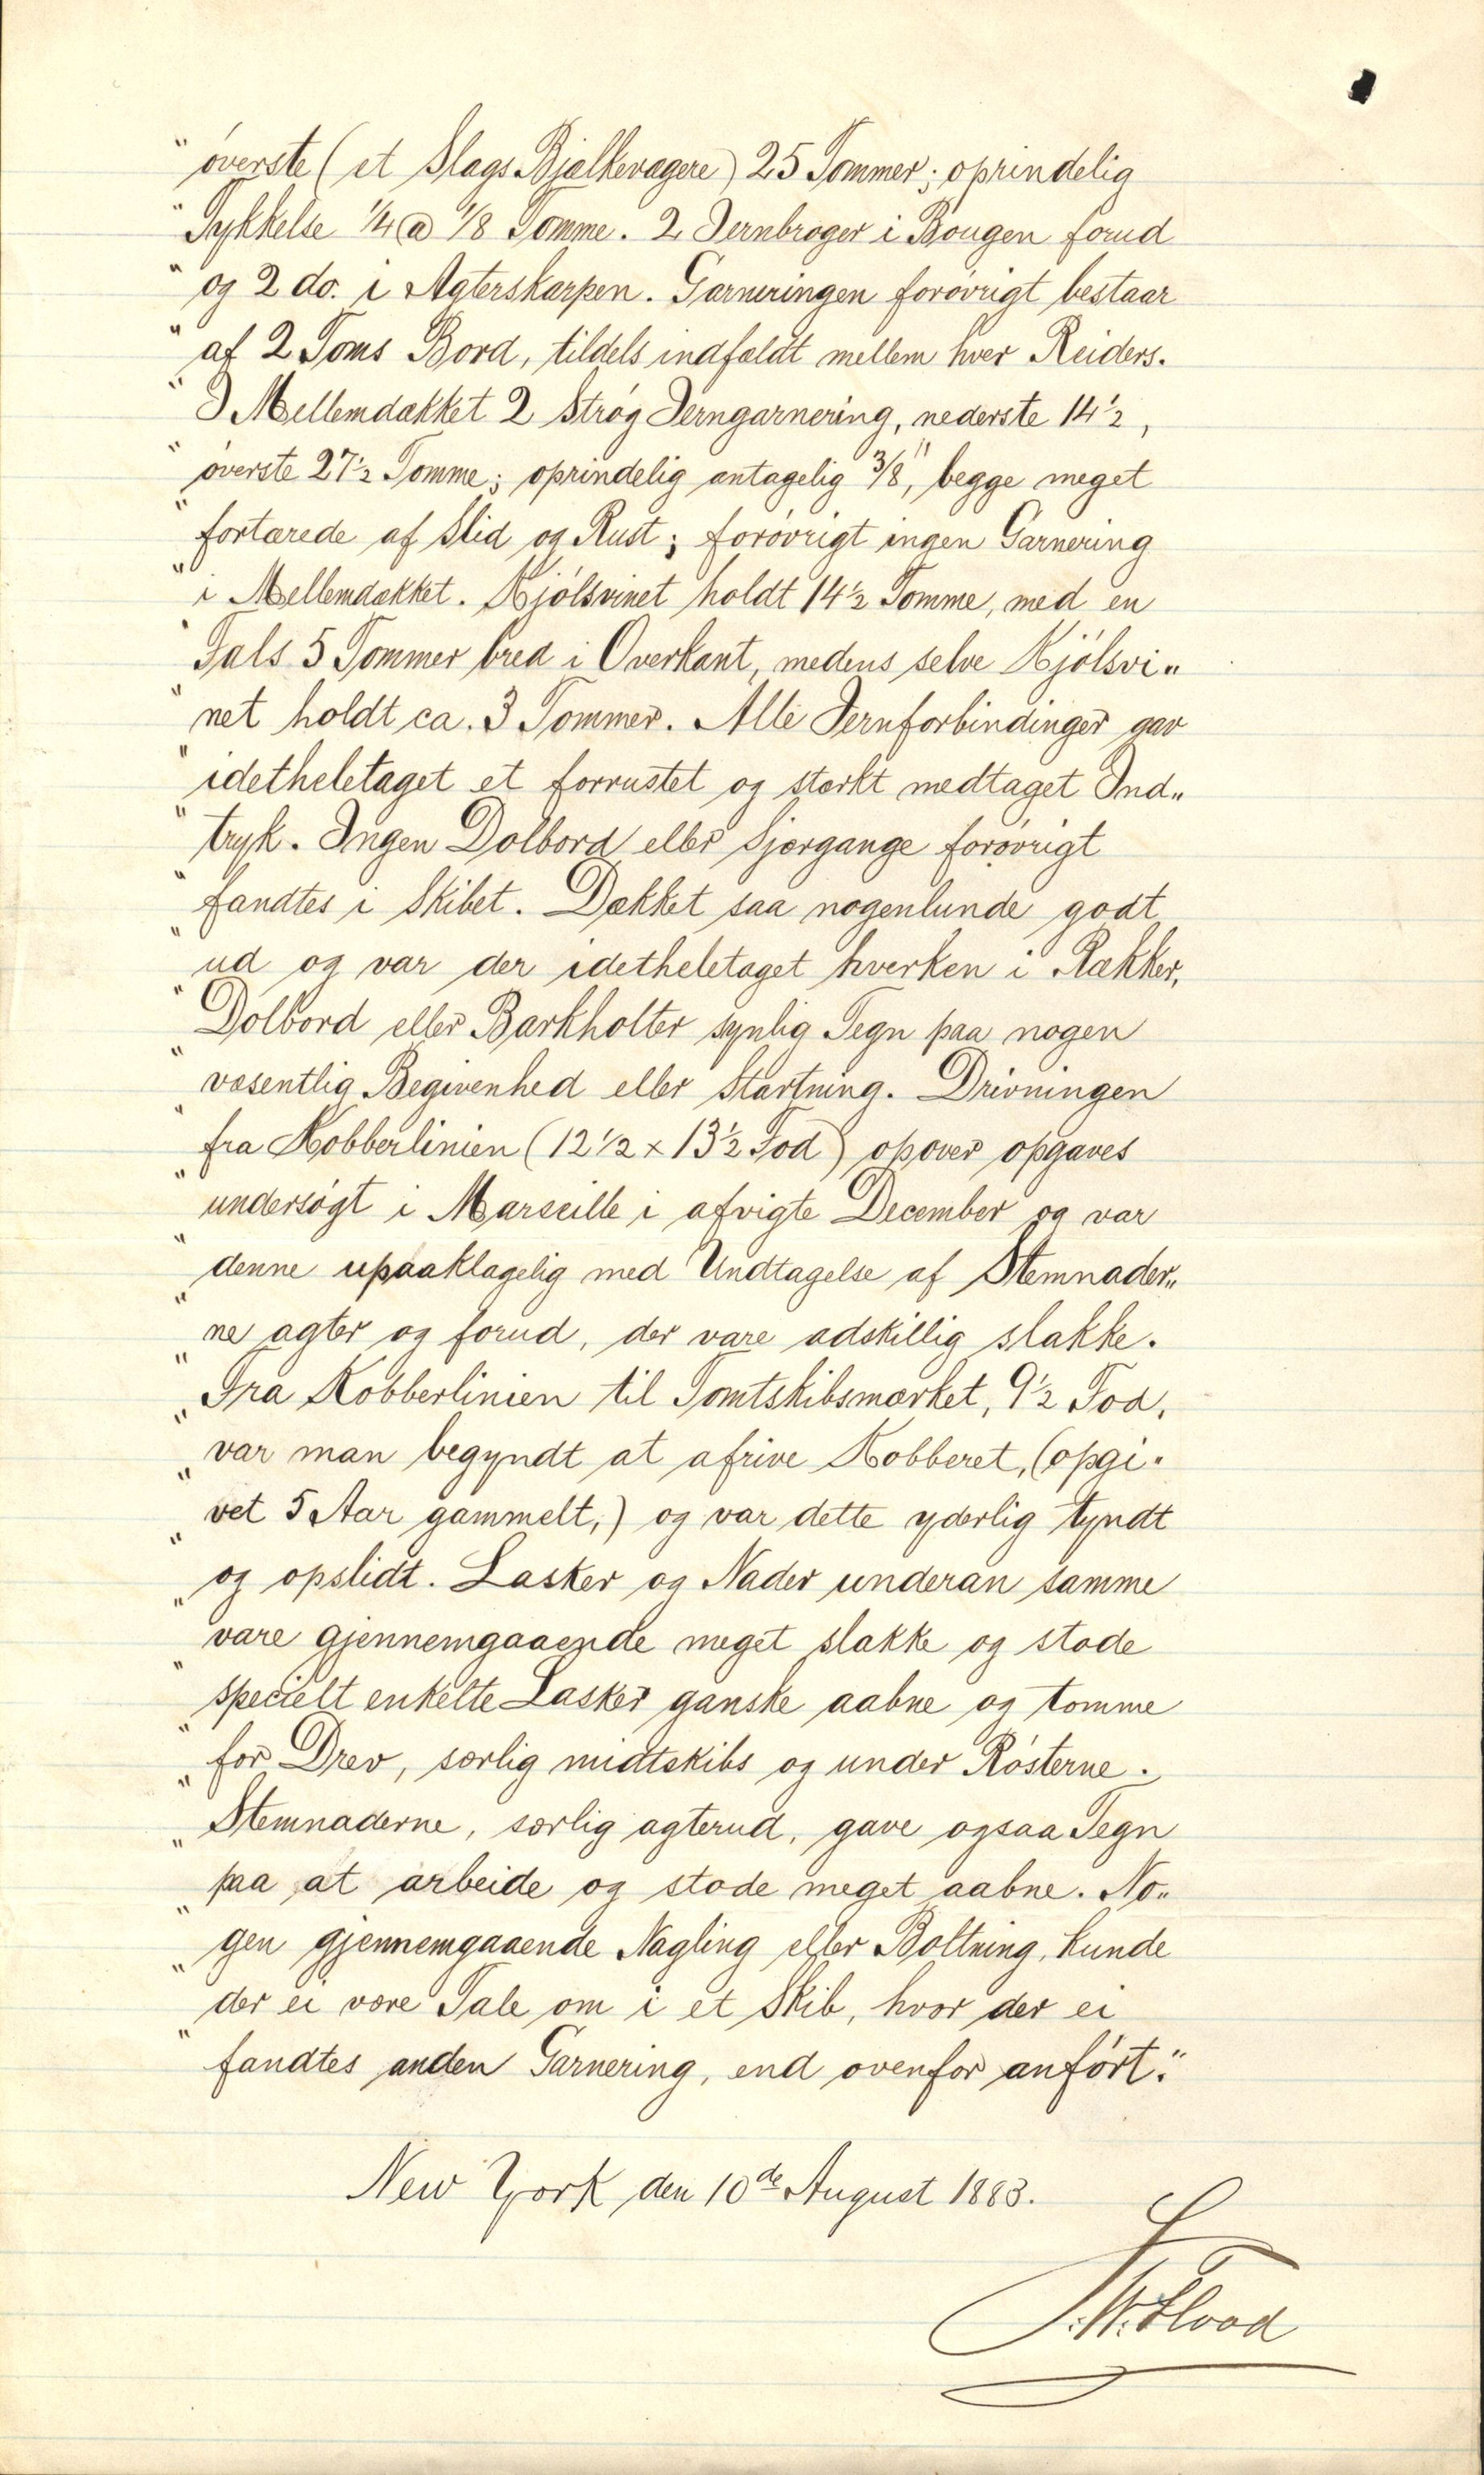 " óverste (et Slags Bjælkevægere) 25 Tommer; oprindelig
" Tykkelse 1/4 @ 1/8 Tomme. 2 Jernbroger i Bougen forud
" og 2 do. i Agterskarpen. Garneringen foróvrigt bestaar
" af 2 Toms Bord, tildels indfældt mellem hver Reiders.
" I Mellemdækket 2 Stróg Jerngarnering, nederste 14 1/2,
" óverste 27 1/2 Tomme; oprindelig antagelig 3/8", begge meget
" fortærede af Slid og Rust; foróvrigt ingen Garnering
" i Mellemdækket. Kjólsvinet holdt 14 1/2 Tomme, med en
" Fals 5 Tommer bred i Overkant, medens selve Kjólsvi„
" net holdt ca. 3 Tommer. Alle Jernforbindinger gav
" idetheletaget et forrustet og stærkt medtaget Ind„
" tryk. Ingen Dolbord eller Sjærgange foróvrigt
" fandtes i Skibet. Dækket saa nogenlunde godt
" ud og var der idetheletaget hverken i Rækker,
" Dolbord eller Barkholter synlig Tegn paa nogen
" væsentlig Begivenhed eller Stærtning. Drivningen
" fra Kobberlinien (12 1/2 x 13 1/2 Fod) opover opgaves
" undersógt i Marseille i afvigte December og var
" denne upaaklagelig med Undtagelse af Stemnader„
" ne agter og forud, der vare adskillig slakke.
" Fra Kobberlinien til Tomtskibsmærket, 9 1/2 Fod,
" var man begyndt at afrive Kobberet, (opgi„
" vet 5 Aar gammelt,) og var dette yderlig tyndt
" og opslidt. Lasker og Nader underan samme
" vare gjennemgaaende meget slakke og stode
" specielt enkelte Lasker ganske aabne og tomme
" for Drev, særlig midtskibs og under Rósterne.
" Stemnaderne, særlig agterud, gave ogsaa Tegn
" paa at arbeide og stode meget aabne. No„
" gen gjennemgaaende Nagling eller Boltning, kunde
" der ei være Tale om i et Skib, hvor der ei
" fandtes anden Garnering, end ovenfor anfórt."
New York den 10de August 1883.
J. W. Flood